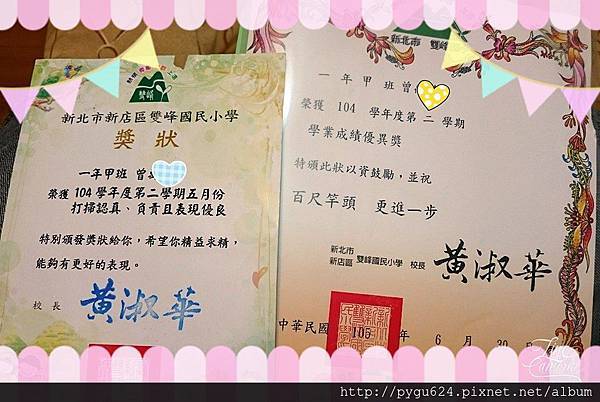 雙峰
新北市新店區雙峰國民小學
獎狀
一年甲班 曾
榮獲104學年度第二學期五月份
打掃認真、負責且表現優良
特別頒發獎狀給你,希望你精益求精,
能夠有更好的表現。
校 長 黃淑華
新北市 雙峰國
一年甲班曾
榮獲 104 學年度第二學期
學業成績優異獎
特頒此狀以資鼓勵,並祝
百尺竿頭 更進一步
新北市
新店區 雙峰國民小學 校長 黃淑華
中華民國 105 年 6 月 30 日
http://pygu624.pixnet.net/album